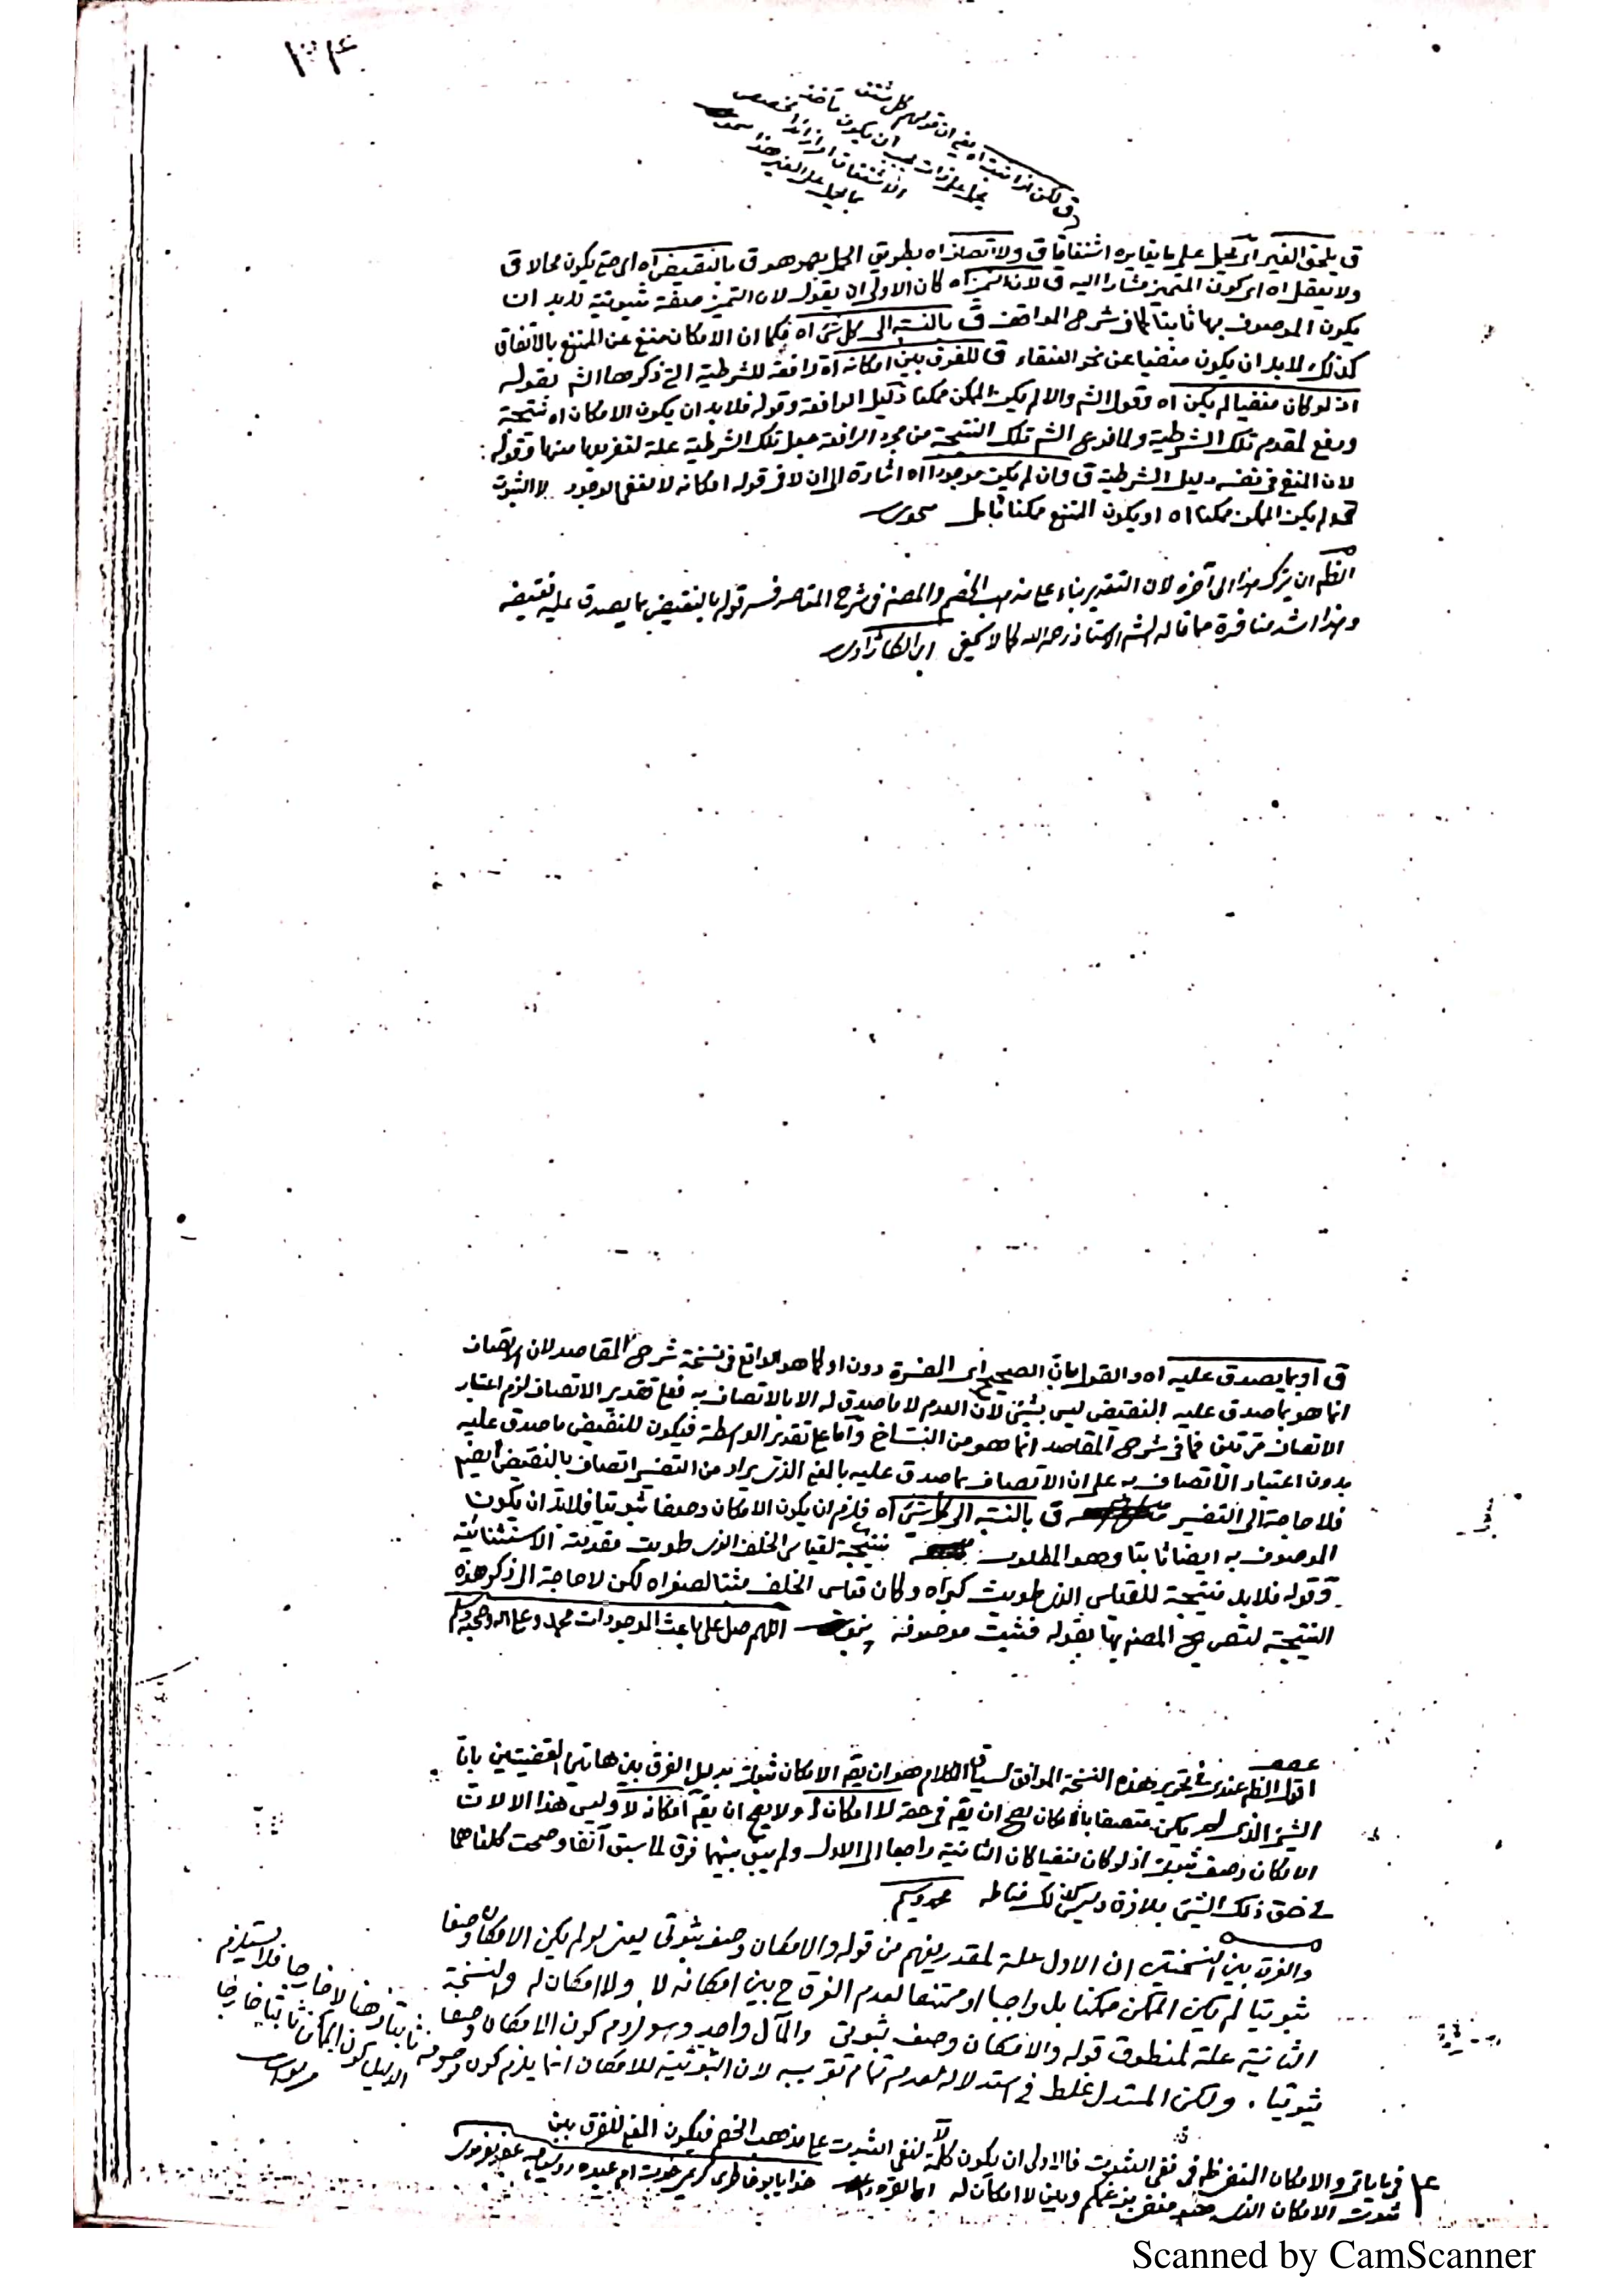 ١٣٤
ق لكن اذا ثبت اه فيه ان قولهم كل مشتق
يحمل على ذات يجب ان يكون مأخذ
الاشتقاق
ما يحمل على الغير هذا
ق يلحق الغير اى يحمل على ما يغايره اشتقاقا ق ولا اتصاف اه بطريق الحمل بهو هو ق بالنقيض اه اى حتى يكون محالا ق
ولا يعقل اه اى كون المتميز مشارا اليه ق لان التميز اه كان الاولى ان يقول لان التميز صفة ثبوتية لابد ان
يكون الموصوف بها ثابتا كما فى شرح المواقف ق بالنسبة الى كل شئ اه فكما ان الامكان منفى عن الممتنع بالاتفاق
كذلك لابد ان يكون منفيا عن نحو العنقاء ق للفرق بين امكانه اه رافعة للشرطية التى ذكرها الشم بقوله
اذ لو كان منفيا لم يكن اه وقول الشم والا لم يكن الممكن ممكنا دليل الرافعة وقوله فلابد ان يكون الامكان اه نتيجة
ورفع لمقدم تلك الشرطية ولما فرع الشم تلك النتيجة من مجرد الرافعة جعل تلك الشرطية علة لتفريعها منها وقوله
لان المنفى فى نفسه دليل الشرطية ق وان لم يكن موجودا اه اشارة الى ان لا فى قوله امكانه لا لنفى الوجود لا الثبوت
لم يكن الممكن ممكنا اه او يكون الممتنع ممكنا تأمل
الظم ان يترك هذا الى آخره لان التقدير بناء على مذهب الخصم والمصنف فى شرح المقاصد فسر قوله بالنقيض بما يصدق عليه نقيضه
وهذا اشد منافرة مما قاله الشم الاستاذ رحمه الله كما لا يخفى ابن القزلجى
ق او بما يصدق عليه اه والقول بان الصحيح اى المفسرة دون او كما هو الواقع فى نسخة شرح المقاصد لان الاتصاف
انما هو بما صدق عليه النقيض ليس بشئ لان العدم لا ما صدق له الا بالاتصاف به فعلى تقدير الاتصاف لزم اعتبار
الاتصاف مرتين فما فى شرح المقاصد انما هو من النساخ واما على تقدير الواسطة فيكون للنقيض ما صدق عليه
بدون اعتبار الاتصاف به على ان الاتصاف بما صدق عليه بالمعنى الذى يراد من التفسير اتصاف بالنقيض ايضم
فلا حاجة الى التفسير ق بالنسبة الى كل شئ اه فلزم ان يكون الامكان وصفا ثبوتيا فلابد ان يكون
الموصوف به ايضا ثابتا وهو المطلوب نتيجة لقياس الخلف الذى طويت مقدمته الاستثنائية
وقوله فلابد نتيجة للقياس الذى طويت كبراه وكان قياس الخلف مثبتا لصغراه لكن لا حاجة الى ذكر هذه
النتيجة لتصريح المصنف بها بقوله فثبت موصوفه اللهم صل على باعث الموجودات محمد وعلى اله وصحبه وسلم
اقول الظم عندى فى تحرير هذه النسخة الموافق لسياق الكلام هو ان يقم الامكان ثبوتى بدليل الفرق بين هاتين القضيتين بان
الشئ الذى لم يكن متصفا بالامكان يصح ان يقم فى حقه لا امكان له ولا يصح ان يقم امكانه لا وليس هذا الا لان
الامكان وصف ثبوتى اذ لو كان منفيا كان الثانية راجعا الى الاول ولم يبق بينهما فرق لما سبق آنفا وصحت كلتاهما
فى حق ذلك الشئ بلا زة وليس كذلك
والفرق بين النسختين ان الاول علة لمقدر يفهم من قوله والامكان وصف ثبوتى يعنى لو لم يكن الامكان وصفا
ثبوتيا لم يكن الممكن ممكنا بل واجبا او ممتنعا لعدم الفرق ح بين امكانه لا ولا امكان له والنسخة
الثانية علة لمنطوق قوله والامكان وصف ثبوتى والمآل واحد وهو لزوم كون الامكان وصفا
ثبوتيا . ولكن المستدل غلط فى استدلاله لعدم تمام تقريبه لان الثبوتية للامكان انما يلزم كون موصوفه ثابتا ذهنا لا خارجا فلا يستلزم
الدليل كون الممكن ثابتا خارجا
فى ما ياتى والامكان المنفى ظم فى نفى الثبوت فالاولى ان يكون كلمة لا لنفى الثبوت على مذهب الخصم فيكون المعنى للفرق بين
ثبوت الامكان الذى هو منفى بزعمكم وبين لا امكان له
Scanned by CamScanner